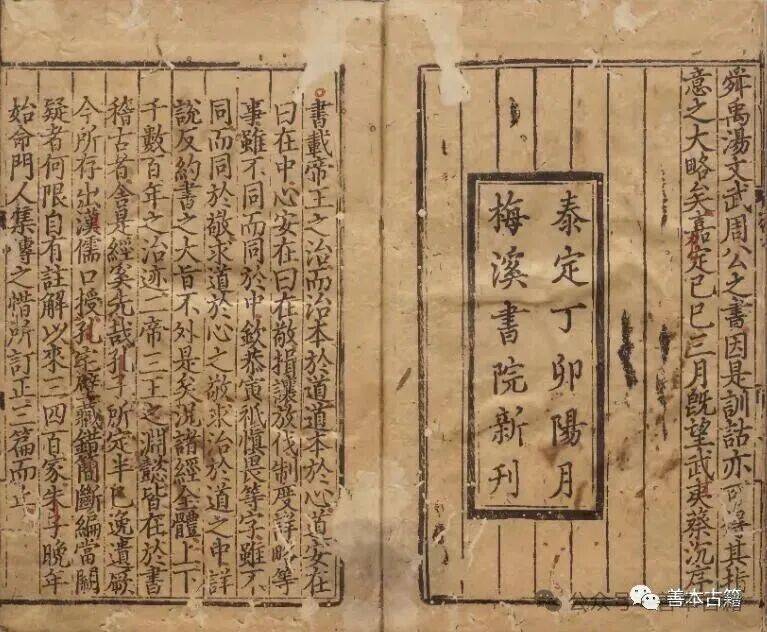 舜禹湯文武周公之書因是訓詁亦可得其指
意之大略矣嘉定己巳三月既望武夷蔡沉序
泰定丁卯陽月
梅溪書院新刊
書載帝王之治而治本於道道本於心道安在
曰在中心安在曰在敬揖讓放伐制度詳略等
事雖不同而同於中欽恭寅祗慎畏等字雖不
同而同於敬求道於心之敬求治於道之中詳
說反約書之大旨不外是矣況諸經全體上下
千數百年之治迹二帝三王之淵懿皆在於書
稽古者舍是經奚先哉孔子所定半已逸遺厥
今所存出漢儒口授孔宅壁藏錯簡斷編當闕
疑者何限自有註解以來三四百家朱子晚年
始命門人集傳之惜所訂正三篇而止
公众号
善本古籍
善本古籍